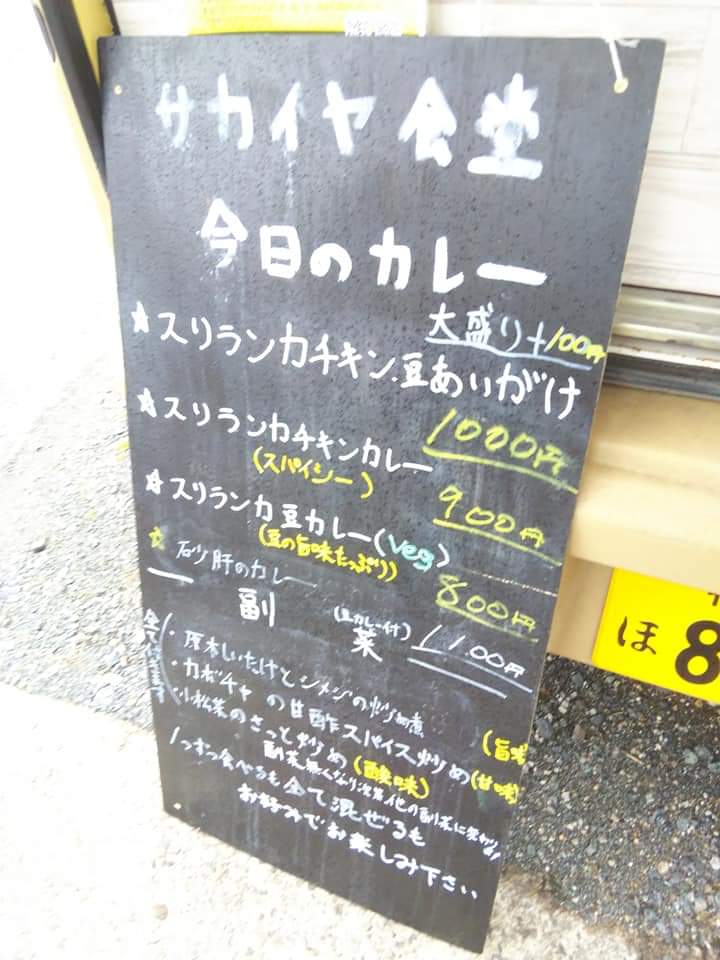 サカイヤ食堂
今日のカレー
大盛り+100円
★スリランカチキン、豆あいがけ
1000円
★スリランカチキンカレー
(スパイシー)
900円
★スリランカ豆カレー(veg)
(豆の旨味たっぷり)
800円
★砂肝のカレー
(豆カレー付)
1100円
副菜
全て付きます
・原木しいたけとシメジの炒め煮
(旨味
・カボチャの甘酢スパイス炒め(甘味)
・小松菜のさっと炒め(酸味)
副菜無くなり次第他の副菜に
1つずつ食べるも全て混ぜるも
お好みでお楽しみ下さい
ほ 8